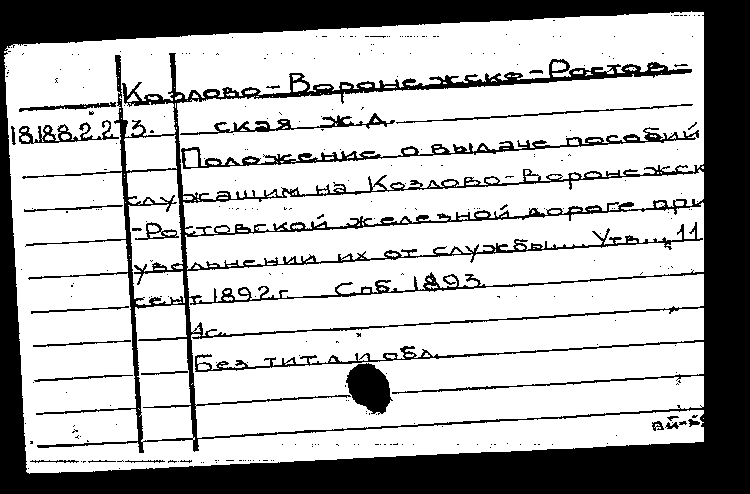 Козлово-Воронежско-Ростов-
18.188.2.273. ская ж.д.
Положение о выдаче пособий
служащим на Козлово-Воронежск
-Ростовской железной дороге при
увольнении их от службы... Утв... 11
сент. 1892 г. Спб. 1893.
4с.
Без тит.л и обл.